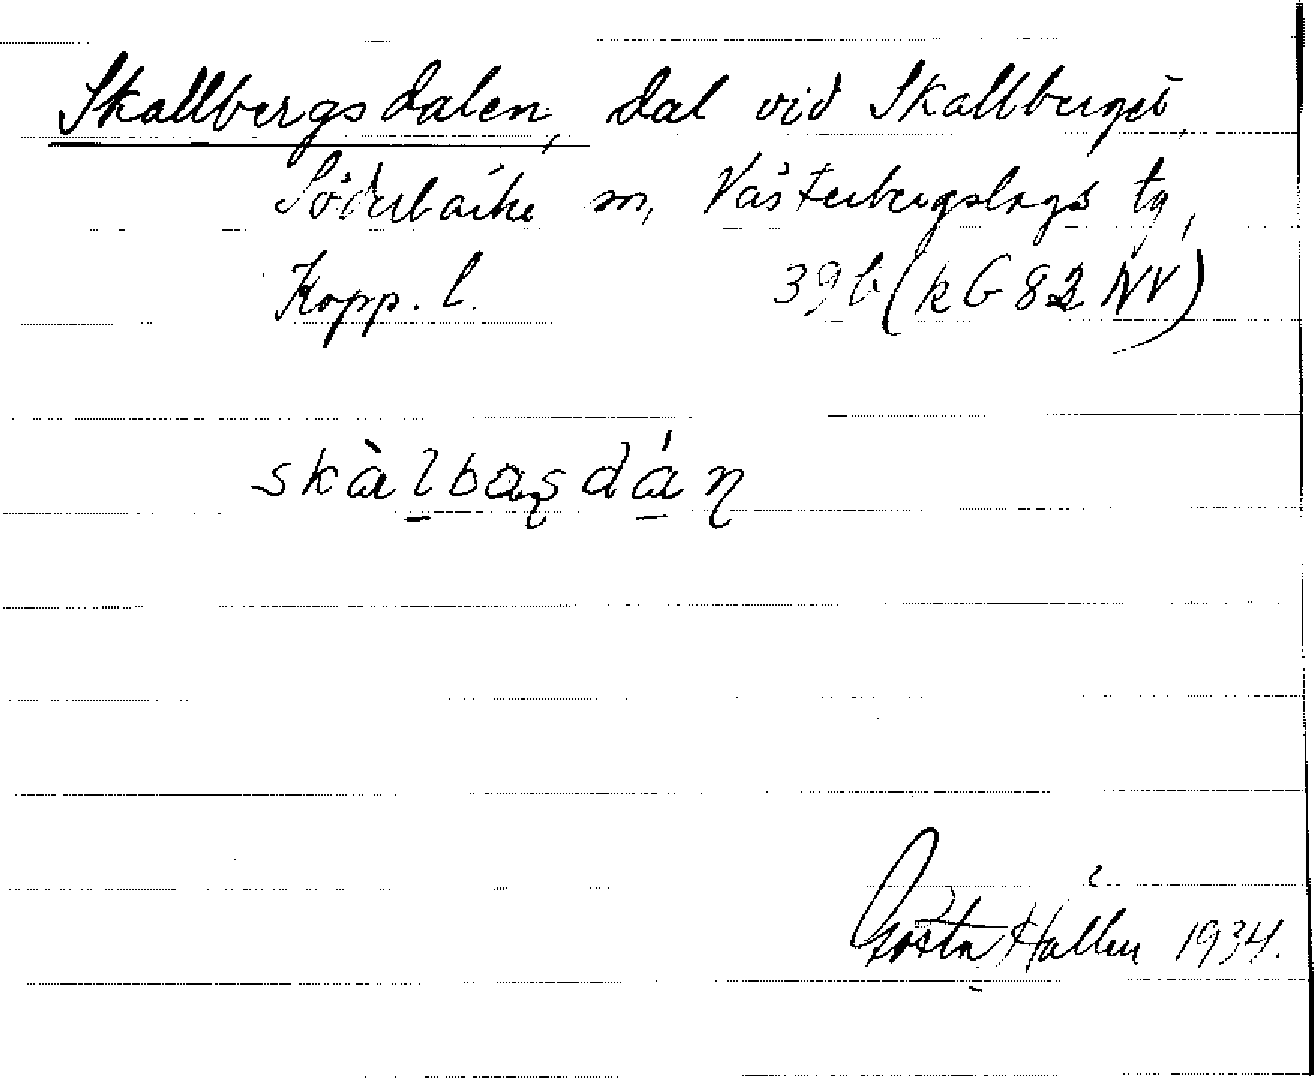 Skallbergsdalen, dal vid Skallberget,
Söderbärke sn, Västerbergslags tg,
Kopp. l. 39b (k G 82 NV)
skàlbaʂdán
Gösta Hallén 1934.